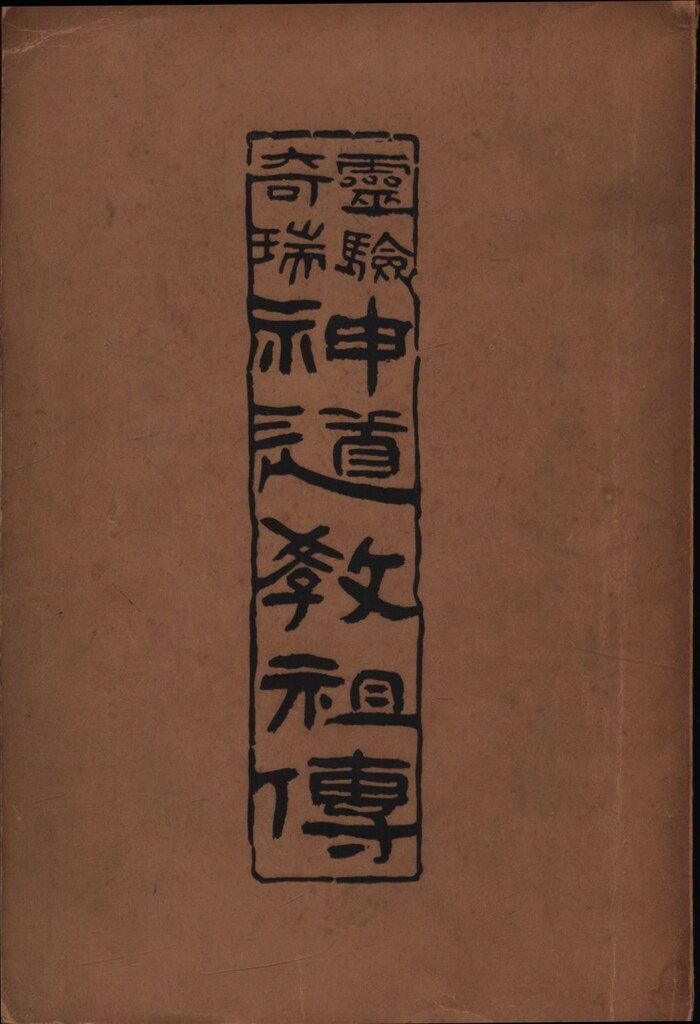 靈驗
奇瑞
神道教祖傳